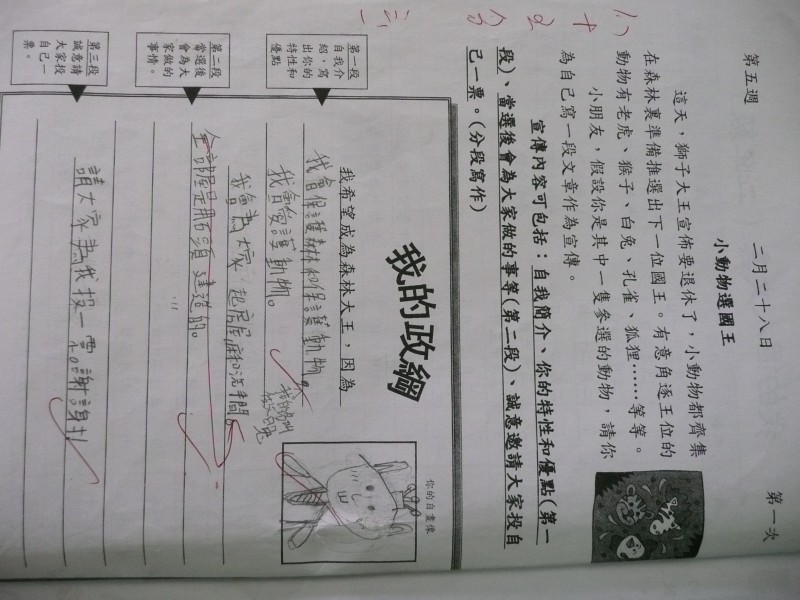 第五週
二月二十八日
第一次
小動物選國王
這天，獅子大王宣佈要退休了，小動物都齊集
在森林裏準備推選出下一位國王。有意角逐王位的
動物有老虎、猴子、白兔、孔雀、狐狸……等等。
小朋友，假設你是其中一隻參選的動物，請你
為自己寫一段文章作為宣傳。
宣傳內容可包括：自我簡介、你的特性和優點(第一
段)、當選後會為大家做的事等(第二段)、誠意邀請大家投自
己一票。(分段寫作)
我的政綱
你的自畫像
第一段
自我介
紹，寫
出你的
特性和
優點
我希望成為森林大王，因為
我會保護森林和保護動物。
我會愛護動物。
第二段
當選後
會為大
家做的
事情。
我會為大家起房屋和洗手間。
全部屋是用石頭建造的。
第三段
誠意請
大家投
自己一
票。
請大家為我投一票。謝謝！